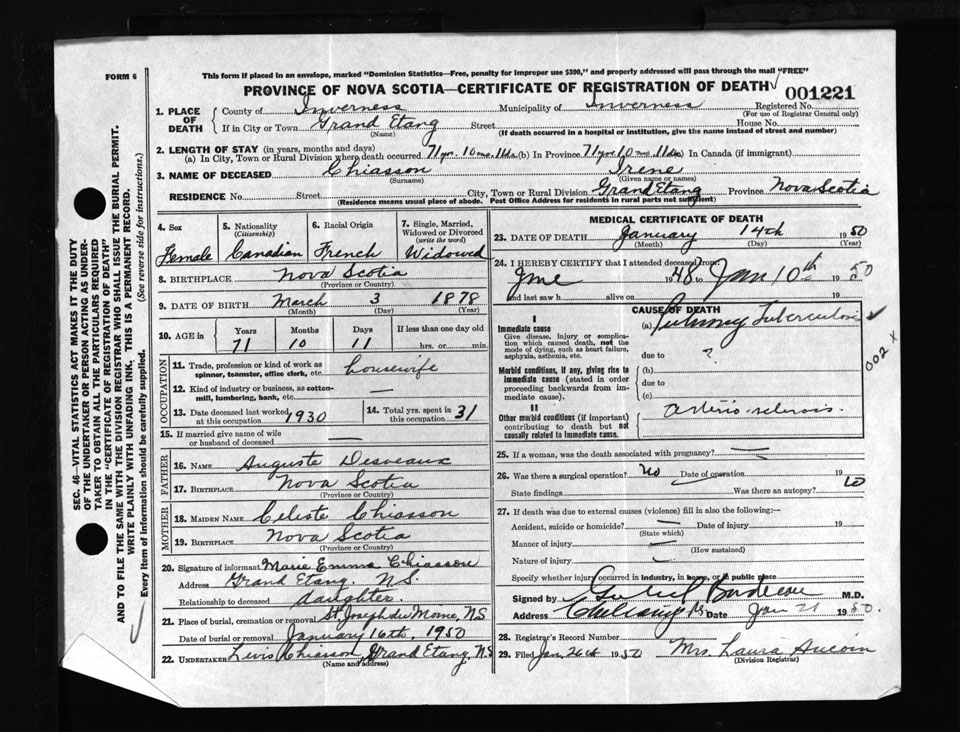 FORM 6
This form if placed in an envelope, marked "Dominion Statistics—Free, penalty for improper use $300," and properly addressed will pass through the mail "FREE"
PROVINCE OF NOVA SCOTIA—CERTIFICATE OF REGISTRATION OF DEATH
001221
1. PLACE OF DEATH
County of Inverness Municipality of Inverness Registered No.
(For use of Registrar General only)
If in City or Town Grand Etang Street House No.
(Name) (If death occurred in a hospital or institution, give the name instead of street and number)
2. LENGTH OF STAY (in years, months and days)
(a) In City, Town or Rural Division where death occurred 71 yrs. 10 mo. 11 da. (b) In Province 71 yrs 10 mo 11 da (c) In Canada (if immigrant)
3. NAME OF DECEASED Chiasson Irene
(Surname) (Given name or names)
RESIDENCE No. Street City, Town or Rural Division Grand Etang Province Nova Scotia
(Residence means usual place of abode. Post Office Address for residents in rural parts not sufficient)
4. Sex Female
5. Nationality (Citizenship) Canadian
6. Racial Origin French
7. Single, Married, Widowed or Divorced (write the word) Widowed
8. BIRTHPLACE Nova Scotia
(Province or Country)
9. DATE OF BIRTH March 3 1878
(Month) (Day) (Year)
10. AGE in Years Months Days If less than one day old
71 10 11 hrs. or min.
OCCUPATION
11. Trade, profession or kind of work as spinner, teamster, office clerk, etc. housewife
12. Kind of industry or business, as cotton-mill, lumbering, bank, etc. —
13. Date deceased last worked at this occupation 1930
14. Total yrs. spent in this occupation 31
15. If married give name of wife or husband of deceased —
FATHER
16. NAME Auguste Desveaux
17. BIRTHPLACE Nova Scotia
(Province or Country)
MOTHER
18. MAIDEN NAME Celiste Chiasson
19. BIRTHPLACE Nova Scotia
(Province or Country)
20. Signature of informant Marie Emma Chiasson
Address Grand Etang. N.S.
Relationship to deceased daughter
21. Place of burial, cremation or removal St. Joseph du Moine, N.S
Date of burial or removal January 16th, 1950
22. UNDERTAKER Levis Chiasson, Grand Etang, N.S
(Name and address)
MEDICAL CERTIFICATE OF DEATH
23. DATE OF DEATH January 14th 1950
(Month) (Day) (Year)
24. I HEREBY CERTIFY that I attended deceased from
1948 Jan 10th 1950
and last saw h alive on 19
CAUSE OF DEATH
I
Immediate cause
Give disease, injury or complication which caused death, not the mode of dying, such as heart failure, asphyxia, asthenia, etc.
(a) Tuberculosis
due to ?
Morbid conditions, if any, giving rise to immediate cause (stated in order proceeding backwards from immediate cause).
(b)
due to
(c)
II
Other morbid conditions (if important) contributing to death but not causally related to immediate cause.
002 x
25. If a woman, was the death associated with pregnancy? —
26. Was there a surgical operation? No Date of operation 19
State findings Was there an autopsy?
27. If death was due to external causes (violence) fill in also the following:—
Accident, suicide or homicide? — Date of injury 19
(State which)
Manner of injury —
(How sustained)
Nature of injury —
Specify whether injury occurred in industry, in home, or in public place
Signed by M.D.
Address Date Jan 21 1950.
28. Registrar's Record Number
29. Filed Jan. 26th 1950 Mrs. Laura Aucoin
(Division Registrar)
SEC. 46—VITAL STATISTICS ACT MAKES IT THE DUTY
OF THE UNDERTAKER OR PERSON ACTING AS UNDER-
TAKER TO OBTAIN ALL THE PARTICULARS REQUIRED
IN THE "CERTIFICATE OF REGISTRATION OF DEATH"
AND TO FILE THE SAME WITH THE DIVISION REGISTRAR WHO SHALL ISSUE THE BURIAL PERMIT.
WRITE PLAINLY WITH UNFADING INK. THIS IS A PERMANENT RECORD.
Every item of information should be carefully supplied. (See reverse side for instructions.)